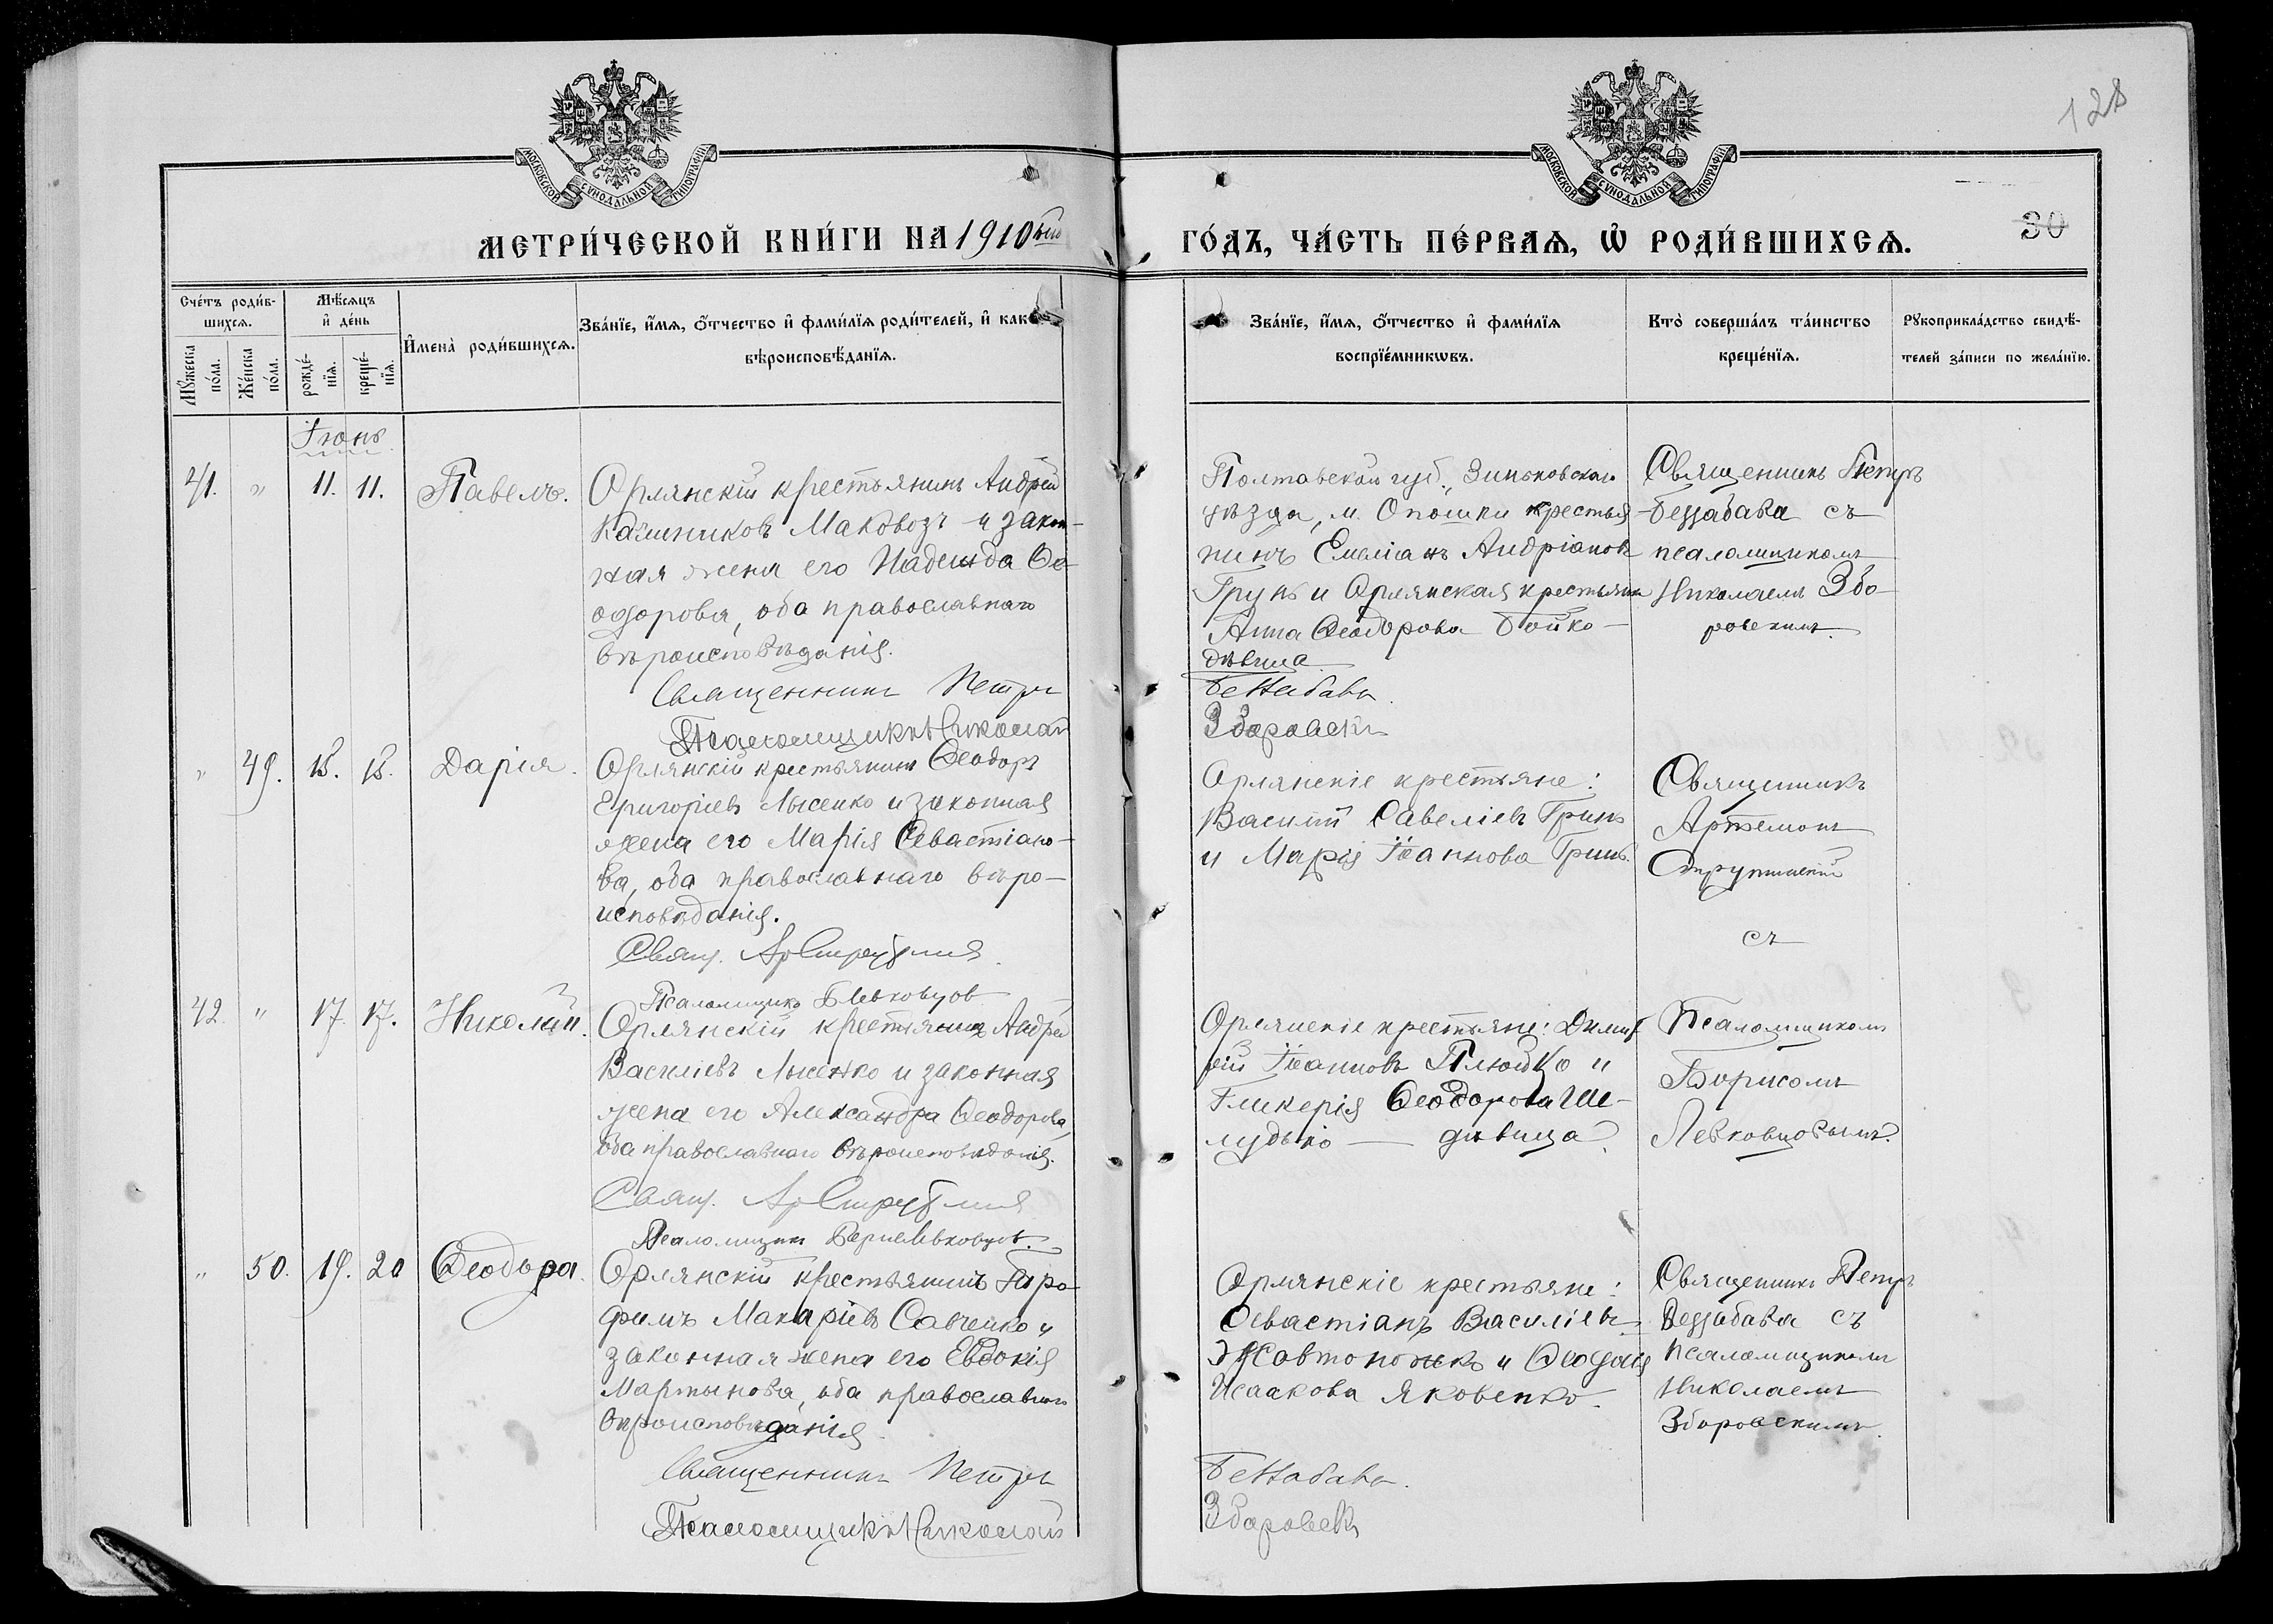 128
МОСКОВСКОЙ СУНОДАЛЬНОЙ ТИПОГРАФІИ
МОСКОВСКОЙ СУНОДАЛЬНОЙ ТИПОГРАФІИ
МЕТРИ́ЧЕСКОЙ КНИ́ГИ НА 1910
ГО́ДЪ, ЧА́СТЬ ПЕ́РВАѦ, Ѿ РОДИ́ВШИХСѦ.
30
Сче́тъ роди́в-
шихсѧ.
Мꙋ́жеска по́ла.
Же́нска по́ла.
Мѣ́сѧцъ
и҆ де́нь
рожде́-
нїѧ.
креще́-
нїѧ.
И҆мена̀ роди́вшихсѧ.
Зва́нїе, и҆́мѧ, ѻ҆́тчество и҆ фами́лїѧ роди́телей, и҆ како́гѡ
вѣроисповѣ́данїѧ.
Зва́нїе, и҆́мѧ, ѻ҆́тчество и҆ фами́лїѧ
воспрїе́мникѡвъ.
Кто̀ соверша́лъ та́инство
креще́нїѧ.
Рꙋкоприкла́дство свидѣ́-
телей за́писи по жела́нїю.
Іюнь
41. " 11. 11. Павелъ.
Орлянскій крестьянинъ Андрей
Калиниковъ Маковозъ и закон-
ная жена его Надежда Ѳе-
одорова, оба православнаго
вѣроисповѣданія.
Священникъ Петръ
Псаломщикъ Николай
Полтавской губ., Зиньковскаго
уѣзда, м. Опошни крестья-
нинъ Емеліанъ Андріановъ
Грунь и Орлянская крестьянка
Анна Ѳеодорова Бойко -
дѣвица.
Беззабава.
Зборовскій
Священникъ Петръ
Беззабава съ
псаломщикомъ
Николаемъ Збо-
ровскимъ.
" 49. 15. 15. Дарія.
Орлянскій крестьянинъ Ѳеодоръ
Григоріевъ Лысенко и законная
жена его Марія Севастіано-
ва, оба православнаго вѣро-
исповѣданія.
Свящ.
Псаломщикъ Б Левковцов
Орлянскіе крестьяне:
Василій Савеліевъ Гринь
и Марія Іоаннова Гринь.
Священникъ
Артемонъ
съ
42. " 17. 17. Николай.
Орлянскій крестьянинъ Андрей
Василіевъ Лысенко и законная
жена его Александра Ѳеодорова,
оба православнаго вѣроисповѣданія.
Свящ.
Псаломщикъ Борис Левковцов.
Орлянскіе крестьяне: Димит-
рій Іоанновъ Плюйко и
Гликерія Ѳеодорова Ше-
лудько — дѣвица.
Псаломщикомъ
Борисомъ
Левковцовымъ.
" 50. 19. 20 Ѳеодора.
Орлянскій крестьянинъ Тро-
фимъ Макаріевъ Савченко и
законная жена его Евдокія
Мартынова, оба православнаго
вѣроисповѣданія.
Священникъ Петръ
Псаломщикъ Николай
Орлянскіе крестьяне:
Севастіанъ Василіевъ
Жовтоножко и Ѳеодосія
Исаакова Яковенко.
Беззабава.
Зборовскій
Священникъ Петръ
Беззабава съ
псаломщикомъ
Николаемъ
Зборовскимъ.